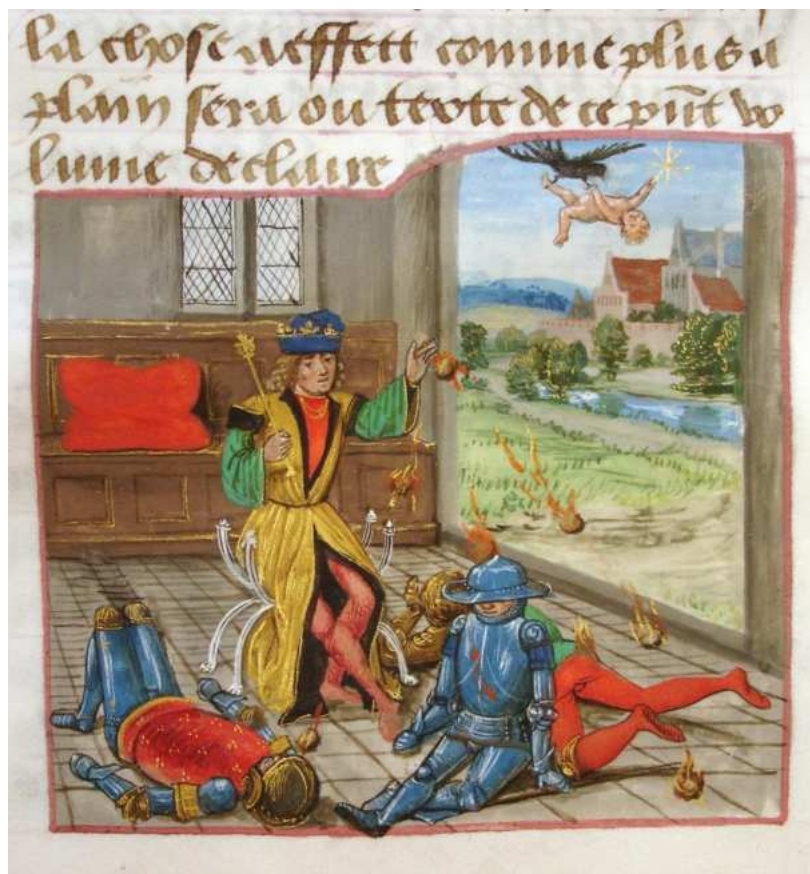 la chose a effett comme plus a
plain sera ou texte de ce pñt vo
lume declaire